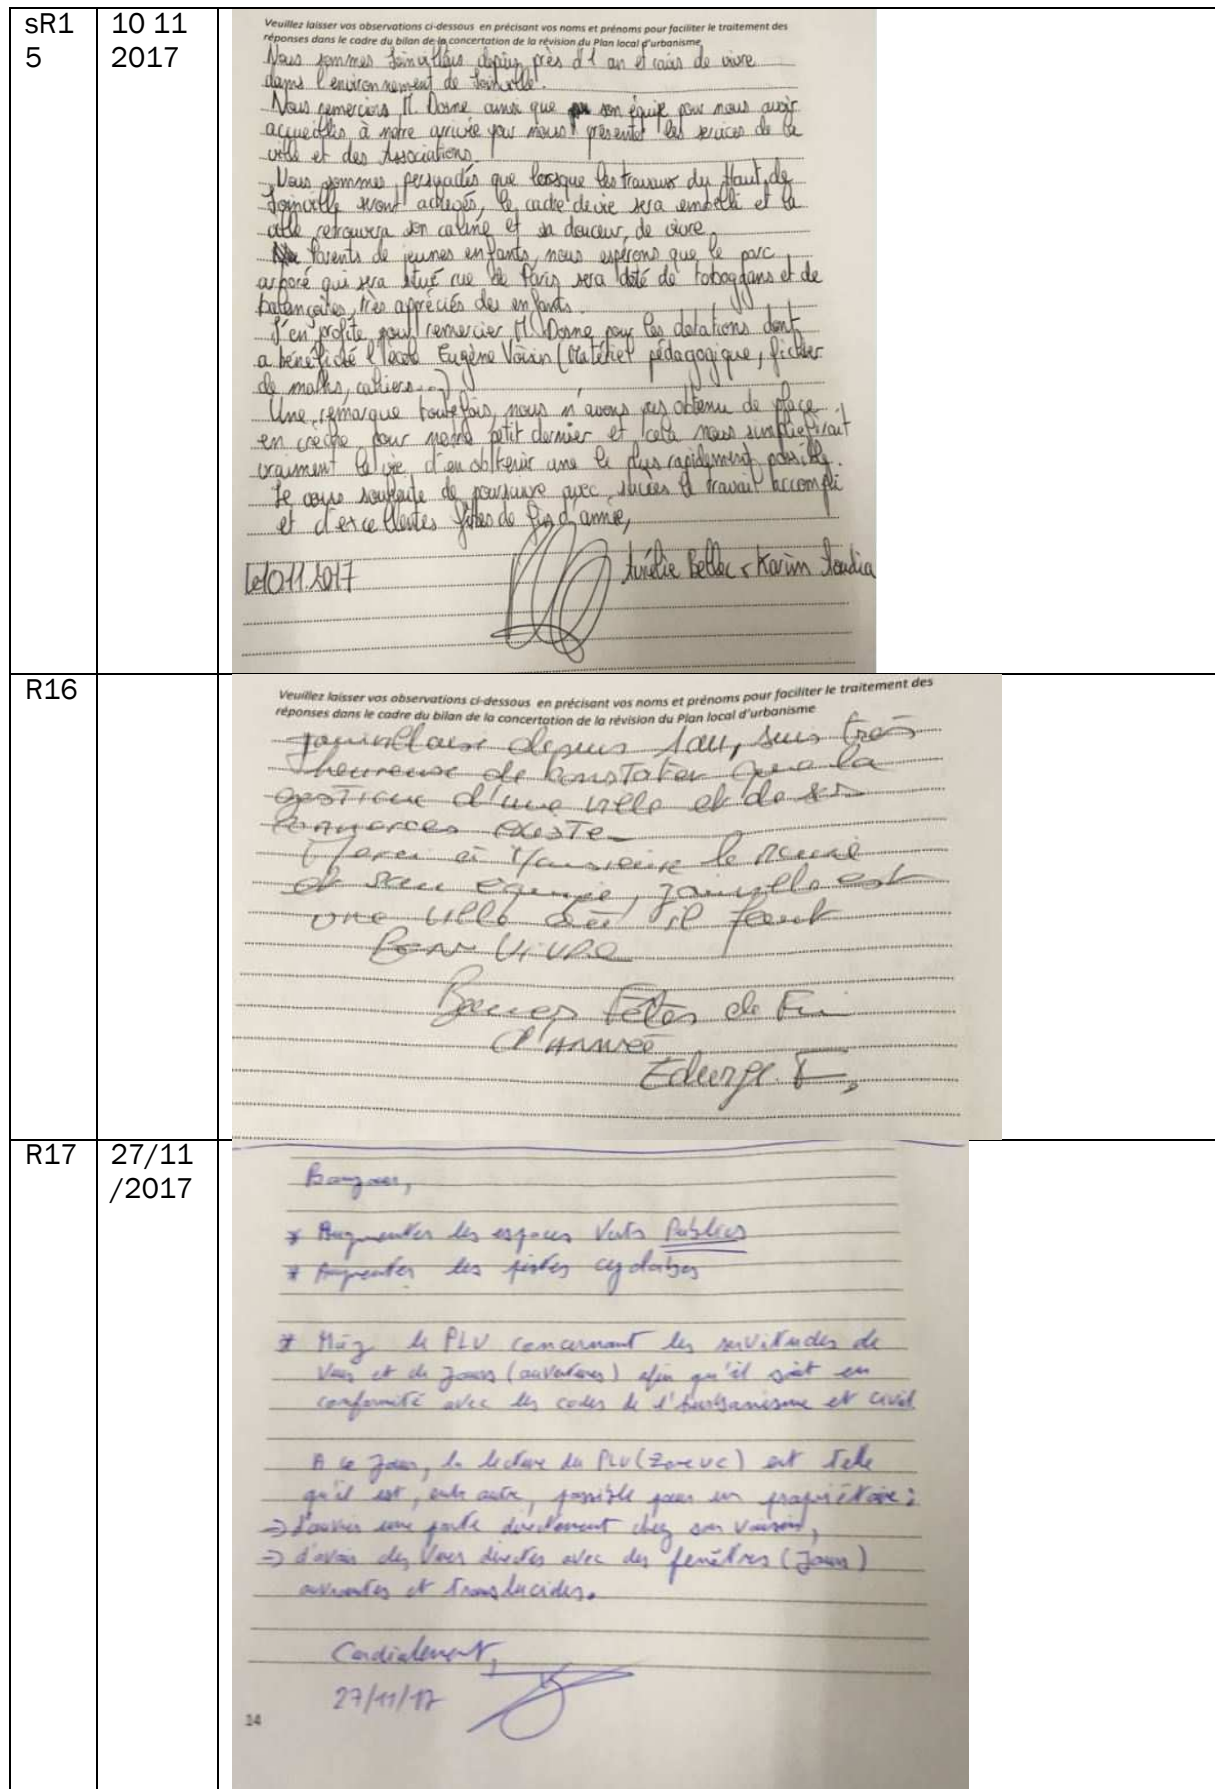 sR1
5
10 11
2017
Veuillez laisser vos observations ci-dessous en précisant vos noms et prénoms pour faciliter le traitement des
réponses dans le cadre du bilan de la concertation de la révision du Plan local d'urbanisme
Nous sommes Joinvillais depuis près d'1 an et ravis de vivre
dans l'environnement de Joinville.
Nous remercions M. Dosne ainsi que son équipe pour nous avoir
accueillis à notre arrivée pour nous présenter les services de la
ville et des Associations.
Nous sommes persuadés que lorsque les travaux du Haut de
Joinville seront achevés, le cadre de vie sera embelli et la
ville retrouvera son calme et sa douceur de vivre.
Parents de jeunes enfants, nous espérons que le parc
arboré qui sera situé rue de Paris sera doté de toboggans et de
balançoires, très appréciés des enfants.
J'en profite pour remercier M. Dosne pour les dotations dont
a bénéficié l'école Eugène Voisin (Matériel pédagogique, fichier
de maths, cahiers...)
Une remarque toutefois, nous n'avons pas obtenu de place
en crèche pour notre petit dernier et cela nous simplifierait
vraiment la vie d'en obtenir une le plus rapidement possible.
Je vous souhaite de poursuivre avec succès le travail accompli
et d'excellentes fêtes de fin d'année,
Le 10.11.2017 Aurélie Bellec Karim
R16
Veuillez laisser vos observations ci-dessous en précisant vos noms et prénoms pour faciliter le traitement des
réponses dans le cadre du bilan de la concertation de la révision du Plan local d'urbanisme
Joinvillaise depuis 1 an, suis très
heureuse de constater que la
gestion d'une ville et de ses
commerces existe
Merci à Monsieur le Maire
et son équipe, Joinville est
une ville où il fait
Bon Vivre
Bonnes Fêtes de Fin
d'Année
Edwige F.
R17
27/11
/2017
Bonjour,
* Augmenter les espaces Verts Publics
* Augmenter les pistes cyclables
* le PLU concernant les servitudes de
Vues et de Jours (ouvertures) afin qu'il soit en
conformité avec les codes de l'urbanisme et civil
A ce Jour, la lecture du PLU (Zone UC) est telle
qu'il est, entre autre, possible pour un propriétaire:
=> d'ouvrir une porte directement chez son voisin,
=> d'avoir des Vues directes avec des fenêtres (Jours)
ouvrantes et translucides.
Cordialement,
27/11/17
14